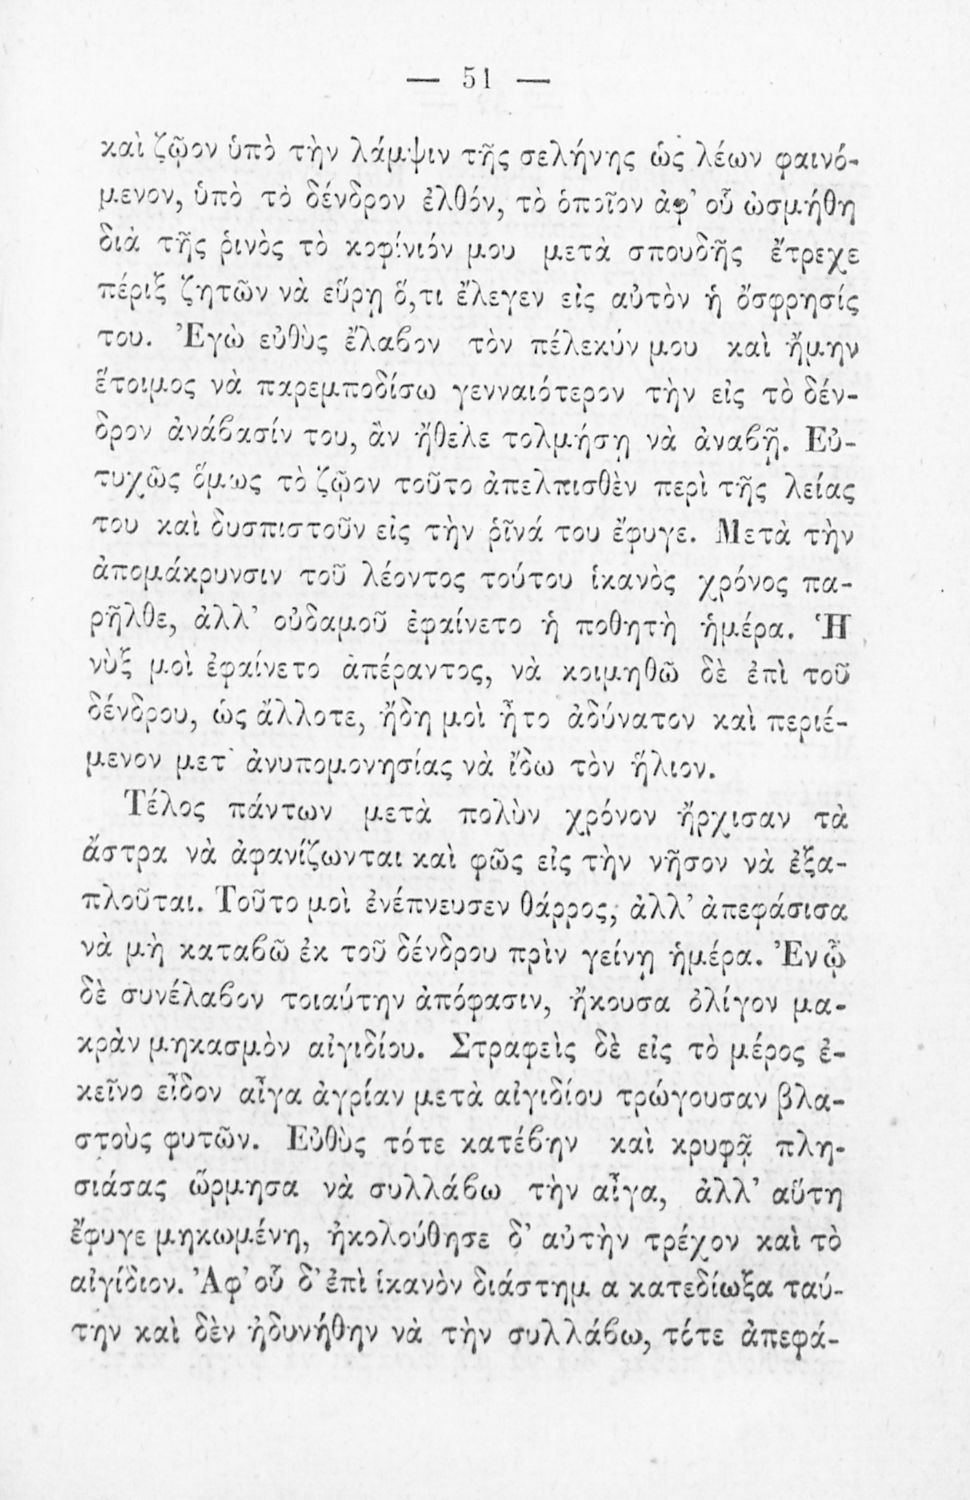 — 51 —
καὶ ζῷον ὑπὸ τὴν λάμψιν τῆς σελήνης ὡς λέων φαινό-
μενον, ὑπὸ τὸ δένδρον ἐλθόν, τὸ ὁποῖον ἀφ’ οὗ ὠσμήθη
διὰ τῆς ῥινὸς τὸ κοφίνιόν μου μετὰ σπουδῆς ἔτρεχε
πέριξ ζητῶν νὰ εὕρῃ ὅ,τι ἔλεγεν εἰς αὐτὸν ἡ ὄσφρησίς
του. Ἐγὼ εὐθὺς ἔλαβον τὸν πέλεκύν μου καὶ ἤμην
ἕτοιμος νὰ παρεμποδίσω γενναιότερον τὴν εἰς τὸ δέν-
δρον ἀνάβασίν του, ἂν ἤθελε τολμήσῃ νὰ ἀναβῇ. Εὐ-
τυχῶς ὅμως τὸ ζῷον τοῦτο ἀπελπισθὲν περὶ τῆς λείας
του καὶ δυσπιστοῦν εἰς τὴν ῥῖνά του ἔφυγε. Μετὰ τὴν
ἀπομάκρυνσιν τοῦ λέοντος τούτου ἱκανὸς χρόνος πα-
ρῆλθε, ἀλλ’ οὐδαμοῦ ἐφαίνετο ἡ ποθητὴ ἡμέρα. Ἡ
νὺξ μοὶ ἐφαίνετο ἀπέραντος, νὰ κοιμηθῶ δὲ ἐπὶ τοῦ
δένδρου, ὡς ἄλλοτε, ἤδη μοὶ ἦτο ἀδύνατον καὶ περιέ-
μενον μετ’ ἀνυπομονησίας νὰ ἴδω τὸν ἥλιον.
Τέλος πάντων μετὰ πολὺν χρόνον ἤρχισαν τὰ
ἄστρα νὰ ἀφανίζωνται καὶ φῶς εἰς τὴν νῆσον νὰ ἐξα-
πλοῦται. Τοῦτο μοὶ ἐνέπνευσεν θάρρος, ἀλλ’ ἀπεφάσισα
νὰ μὴ καταβῶ ἐκ τοῦ δένδρου πρὶν γείνῃ ἡμέρα. Ἐνῷ
δὲ συνέλαβον τοιαύτην ἀπόφασιν, ἤκουσα ὀλίγον μα-
κρὰν μηκασμὸν αἰγιδίου. Στραφεὶς δὲ εἰς τὸ μέρος ἐ-
κεῖνο εἶδον αἶγα ἀγρίαν μετὰ αἰγιδίου τρώγουσαν βλα-
στοὺς φυτῶν. Εὐθὺς τότε κατέβην καὶ κρυφᾷ πλη-
σιάσας ὥρμησα νὰ συλλάβω τὴν αἶγα, ἀλλ’ αὕτη
ἔφυγε μηκωμένη, ἠκολούθησε δ’ αὐτὴν τρέχον καὶ τὸ
αἰγίδιον. Ἀφ’ οὗ δ’ ἐπὶ ἱκανὸν διάστημ α κατεδίωξα ταύ-
την καὶ δὲν ἠδυνήθην νὰ τὴν συλλάβω, τότε ἀπεφά-